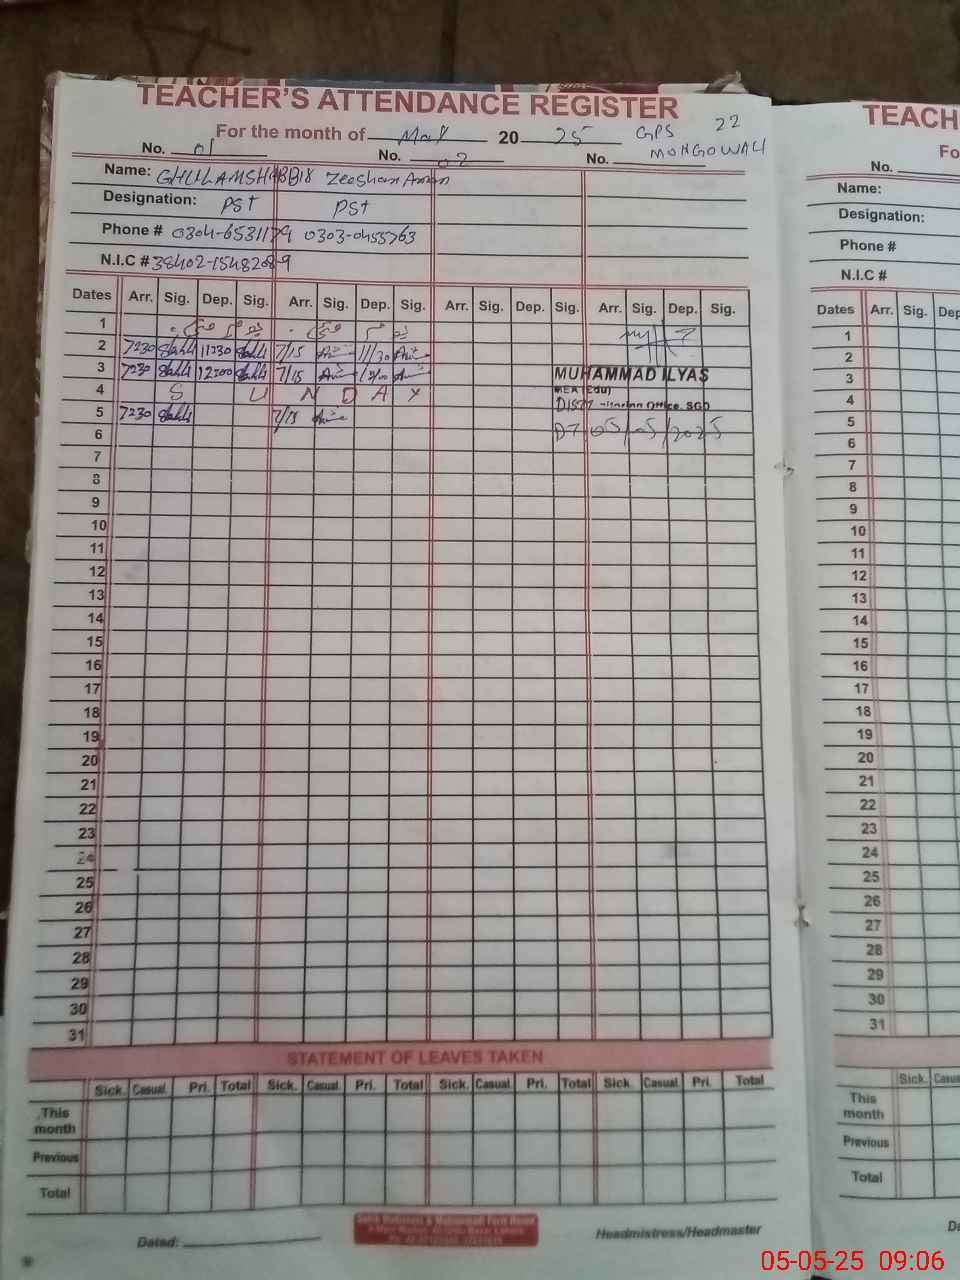 TEACHER'S ATTENDANCE REGISTER
For the month of May 20 25 GPS 22
MONGOWALI
No. 01 No. 02 No.
Name: GHULAMSHABBIR Zeeshan Aman
Designation: PST PST
Phone # 0304-6531179 0303-0455763
N.I.C # 38402-1548208-9
Dates Arr. Sig. Dep. Sig. Arr. Sig. Dep. Sig. Arr. Sig. Dep. Sig. Arr. Sig. Dep. Sig.
1
2 7230 11230 7/15 11/30
3 7230 12200 7/15 MUHAMMAD ILYAS
MEA (Edu)
4 S U N D A Y
5 7230 7/15
6 05/05/2025
7
8
9
10
11
12
13
14
15
16
17
18
19
20
21
22
23
24
25
26
27
28
29
30
31
STATEMENT OF LEAVES TAKEN
Sick. Casual. Pri. Total Sick. Casual. Pri. Total Sick. Casual. Pri. Total Sick. Casual. Pri. Total
This month
Previous
Total
Dated: Headmistress/Headmaster
TEACH
Fo
No.
Name:
Designation:
Phone #
N.I.C #
Dates Arr. Sig. Dep
1
2
3
4
5
6
7
8
9
10
11
12
13
14
15
16
17
18
19
20
21
22
23
24
25
26
27
28
29
30
31
Sick. Casu
This month
Previous
Total
D
05-05-25 09:06